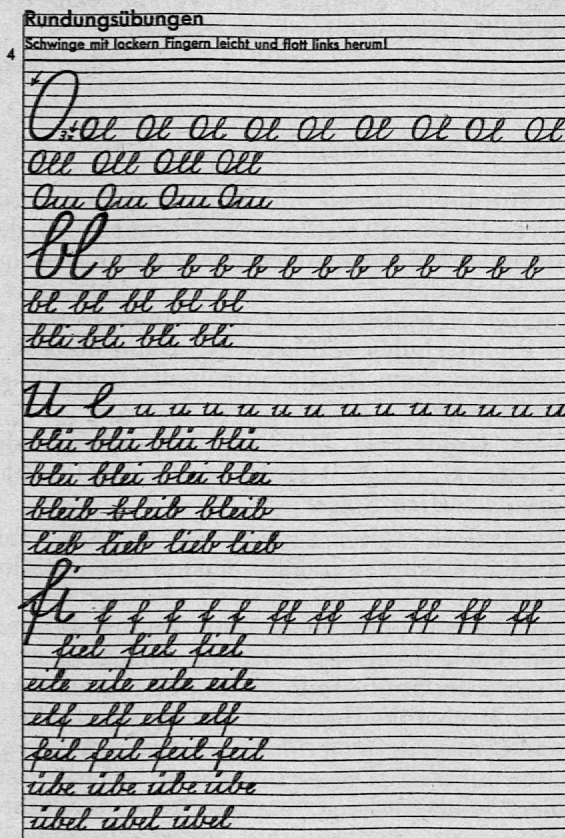 Rundungsübungen
Schwinge mit lockern Fingern leicht und flott links herum!
4
O Ol Ol Ol Ol Ol Ol Ol Ol Ol
Oll Oll Oll Oll
Ou Ou Ou Ou
bl b b b b b b b b b b b b b
bl bl bl bl bl
bli bli bli bli
u e u u u u u u u u u u u u u
blü blü blü blü
blei blei blei blei
bleib bleib bleib
lieb lieb lieb lieb
fi f f f f f ff ff ff ff ff ff
fiel fiel fiel
eile eile eile eile
elf elf elf elf
feil feil feil feil
übe übe übe übe
übel übel übel